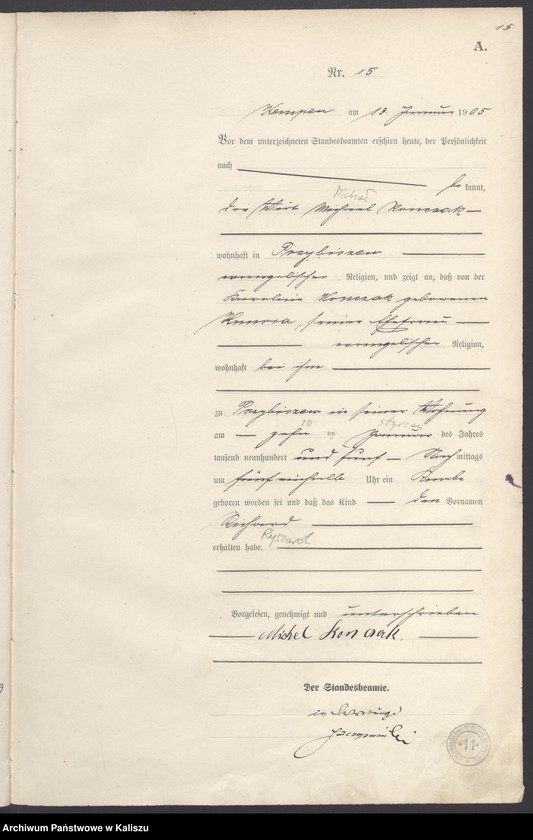 15
A.
Nr. 15
Kempen am 18. Januar 1905
Vor dem unterzeichneten Standesbeamten erschien heute, der Persönlichkeit
nach
be kannt,
Michał
der Wirt Michael Konczak
wohnhaft in Przybiszew
evangelischer Religion, und zeigt an, daß von der
Karolina Konczak geborenen
seiner Ehefrau
evangelischer Religion,
wohnhaft bei ihm
zu Przybiszew in seiner Wohnung
10 styczeń
am zehn ten Januar des Jahres
tausend neunhundert und fünf Nach mittags
um fünf einhalb Uhr ein Knabe
geboren worden sei und daß das Kind den Vornamen
Richard
Ryszard
erhalten habe.
Vorgelesen, genehmigt und unterschrieben
Michel Konczak.
Der Standesbeamte.
in Vertretung
11
Archiwum Państwowe w Kaliszu